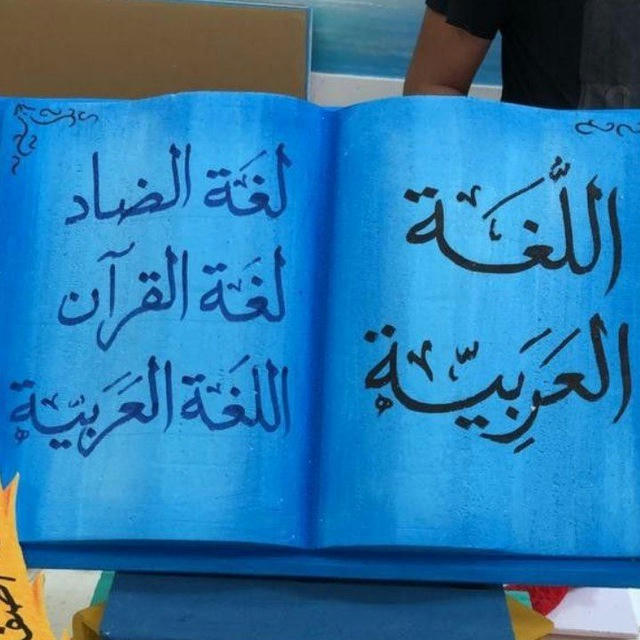 اللُّغَة
العَرَبِيّة
لغَة الضاد
لغَة القرآن
اللغَة العَرَبيّة